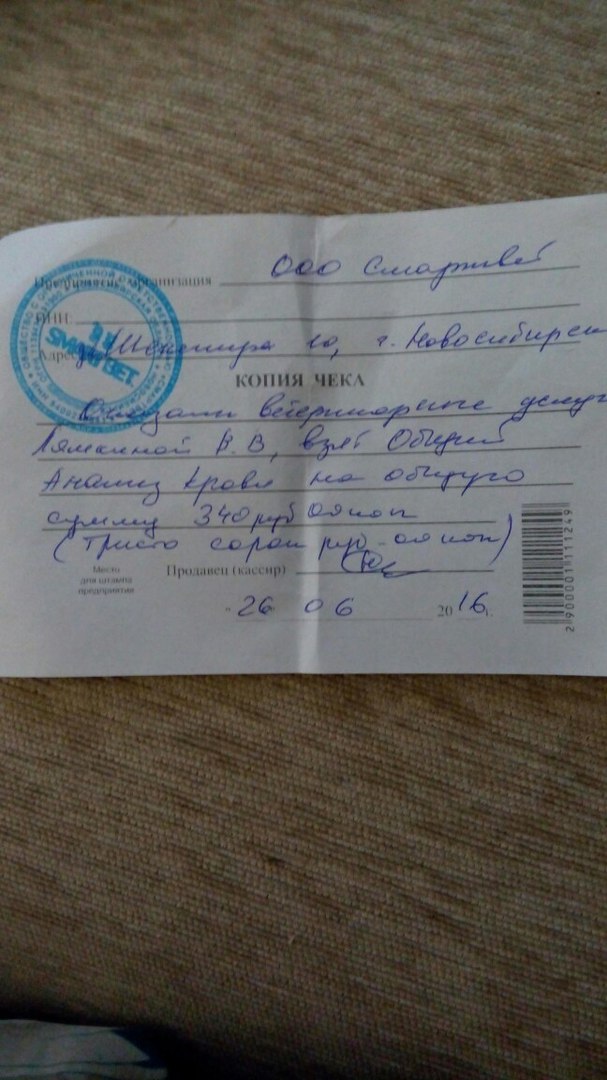 Предприятие, организация ООО Смартвет
ИНН
Адрес г. Новосибирск
КОПИЯ ЧЕКА
Оказаны ветеринарные услуги
В.В, взят Общий
Анализ крови на общую
сумму 340 руб 00 коп
(Триста сорок руб. 00 коп)
Место
для штампа
предприятия
Продавец (кассир)
"26" 06 2016г.
2 900001 111249
SMART ВЕТ